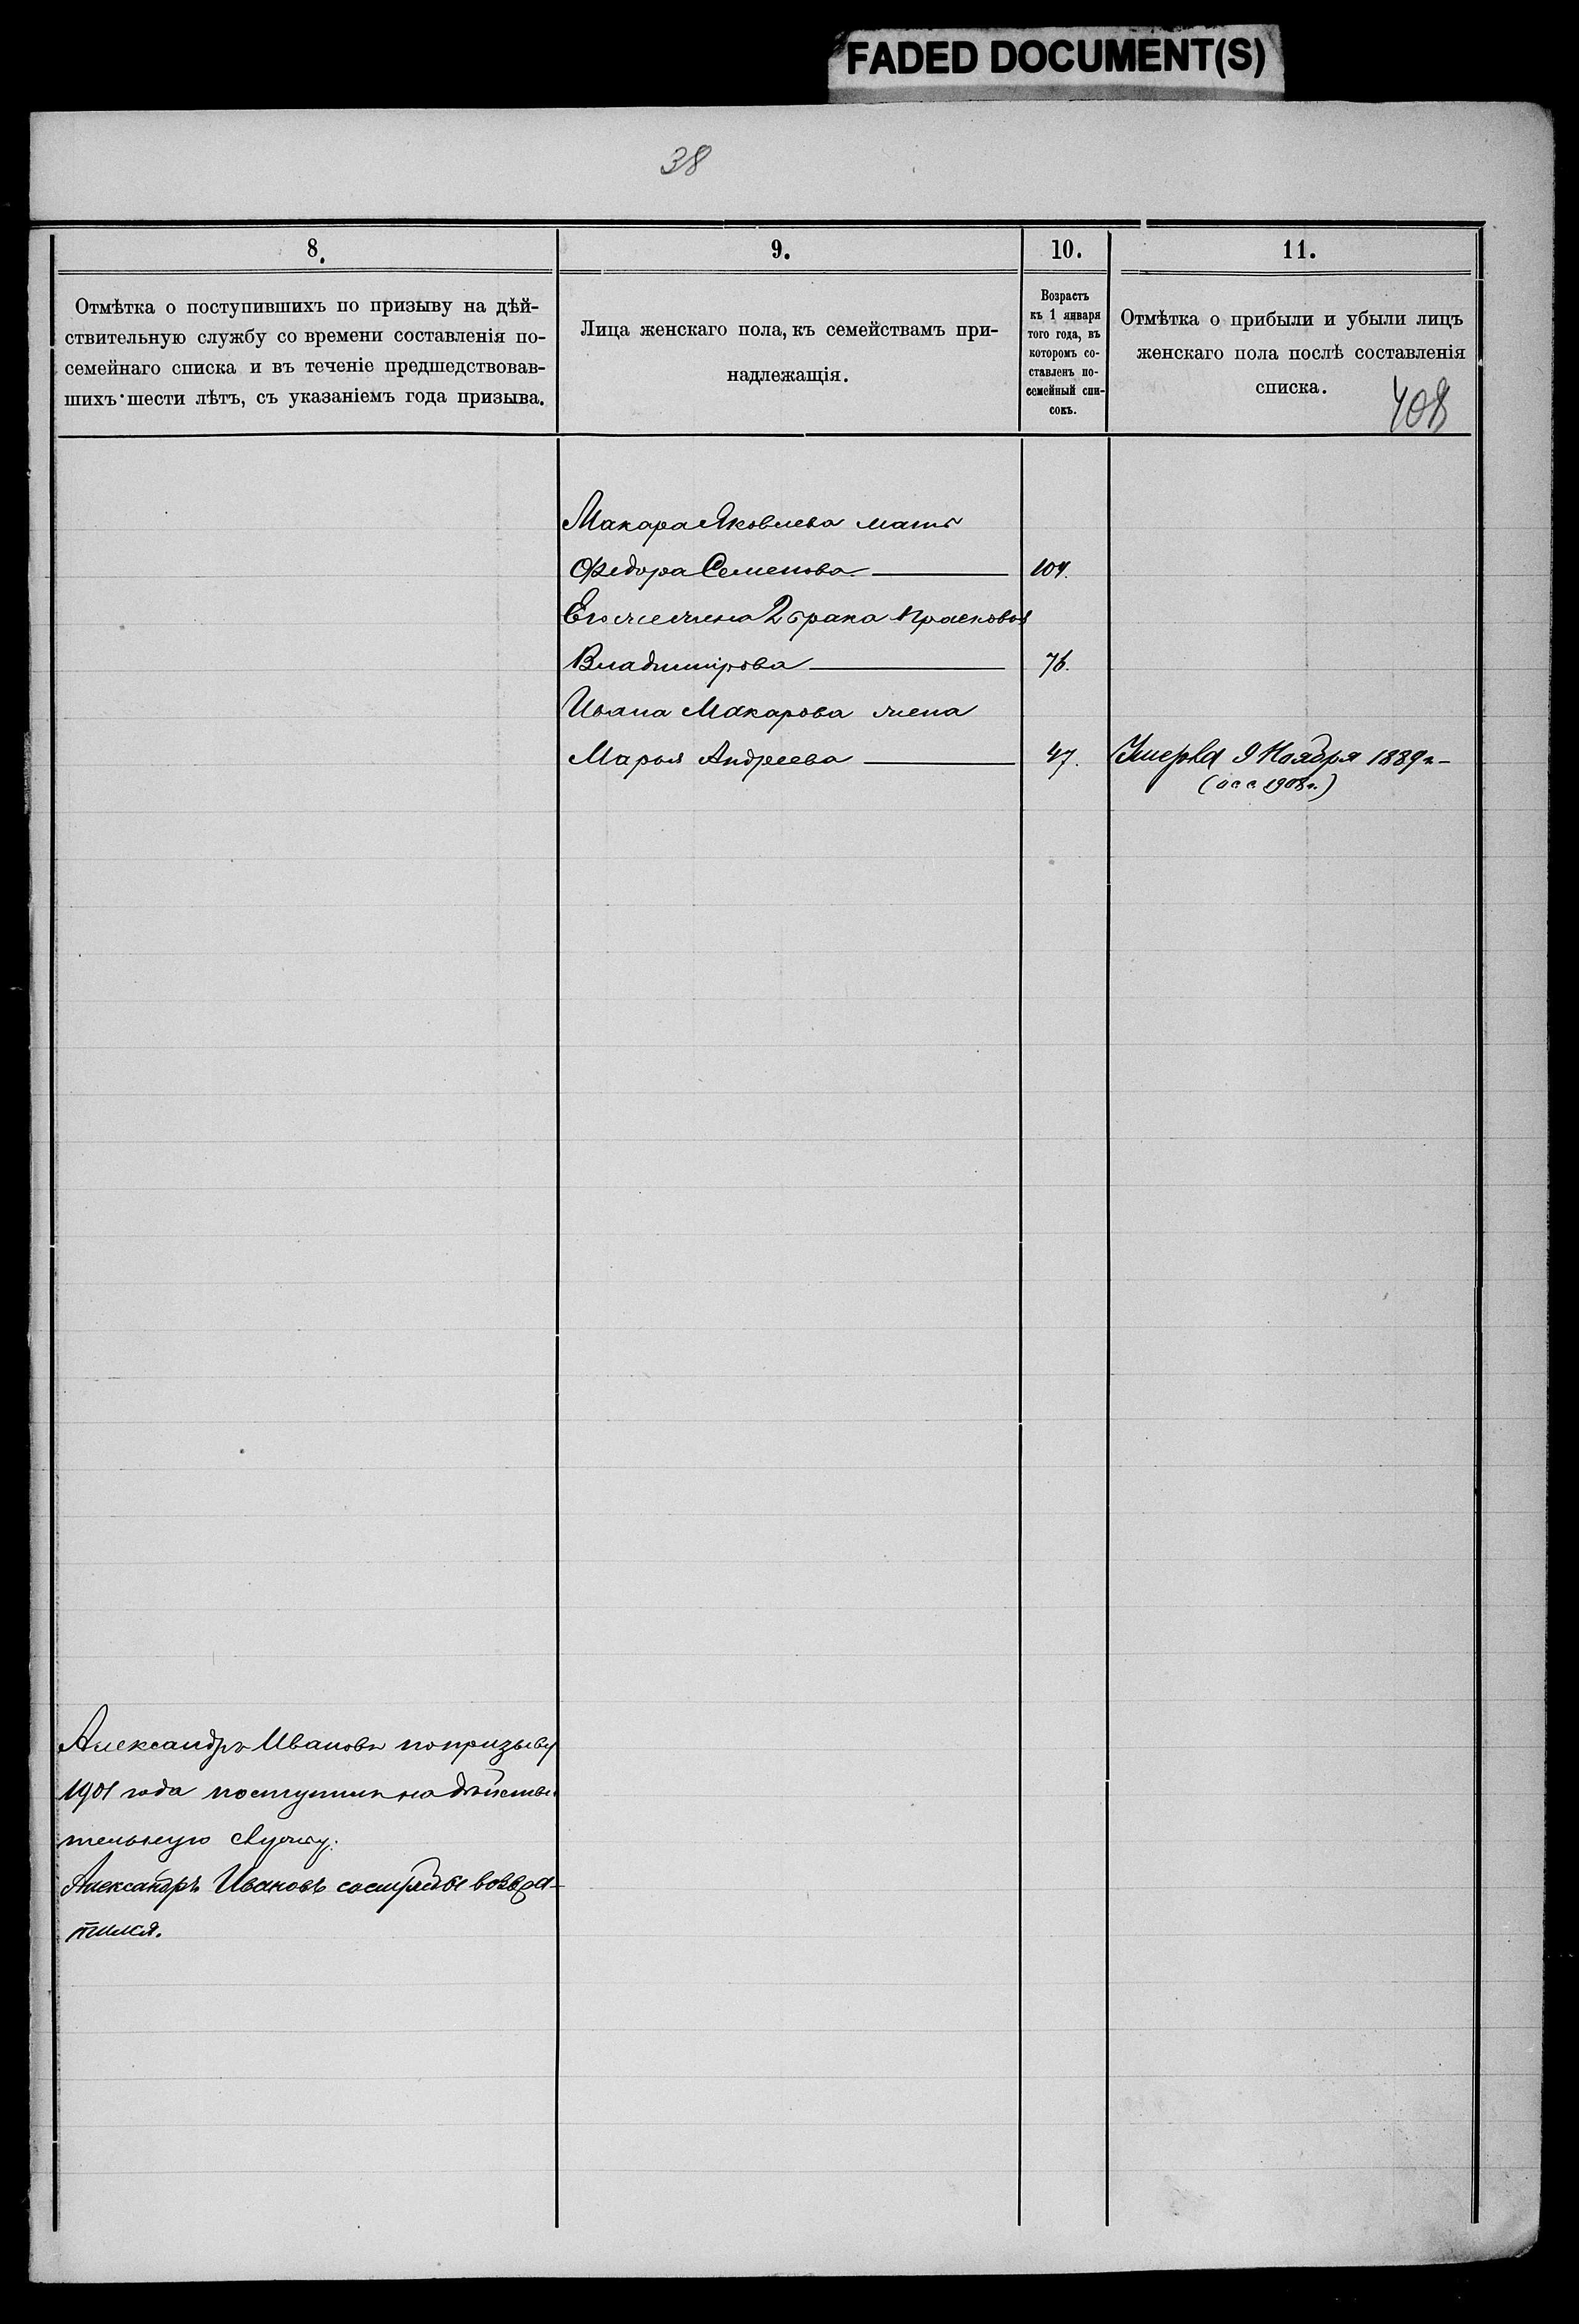 FADED DOCUMENT(S)
38
8.
Отмѣтка о поступившихъ по призыву на дѣй-
ствительную службу со времени составленія по-
семейнаго списка и въ теченіе предшедствовав-
шихъ шести лѣтъ, съ указаніемъ года призыва.
9.
Лица женскаго пола, къ семействамъ при-
надлежащія.
10.
Возрастъ
къ 1 января
того года, въ
которомъ со-
ставленъ по-
семейный спи-
сокъ.
11.
Отмѣтка о прибыли и убыли лицъ
женскаго пола послѣ составленія
списка.
408
Макара Яковлева мать
Федора Семенова 104.
Его же жена 2 брака Прасковья
Владимирова 76.
Ивана Макарова жена
Марья Андреева 47. Умерла 9 Ноября 1889 г.
1908 г.)
Александръ Ивановъ по призыву
1901 года поступилъ на дѣйстви
тельную службу.
Александръ Ивановъ со службы возвра-
тился.